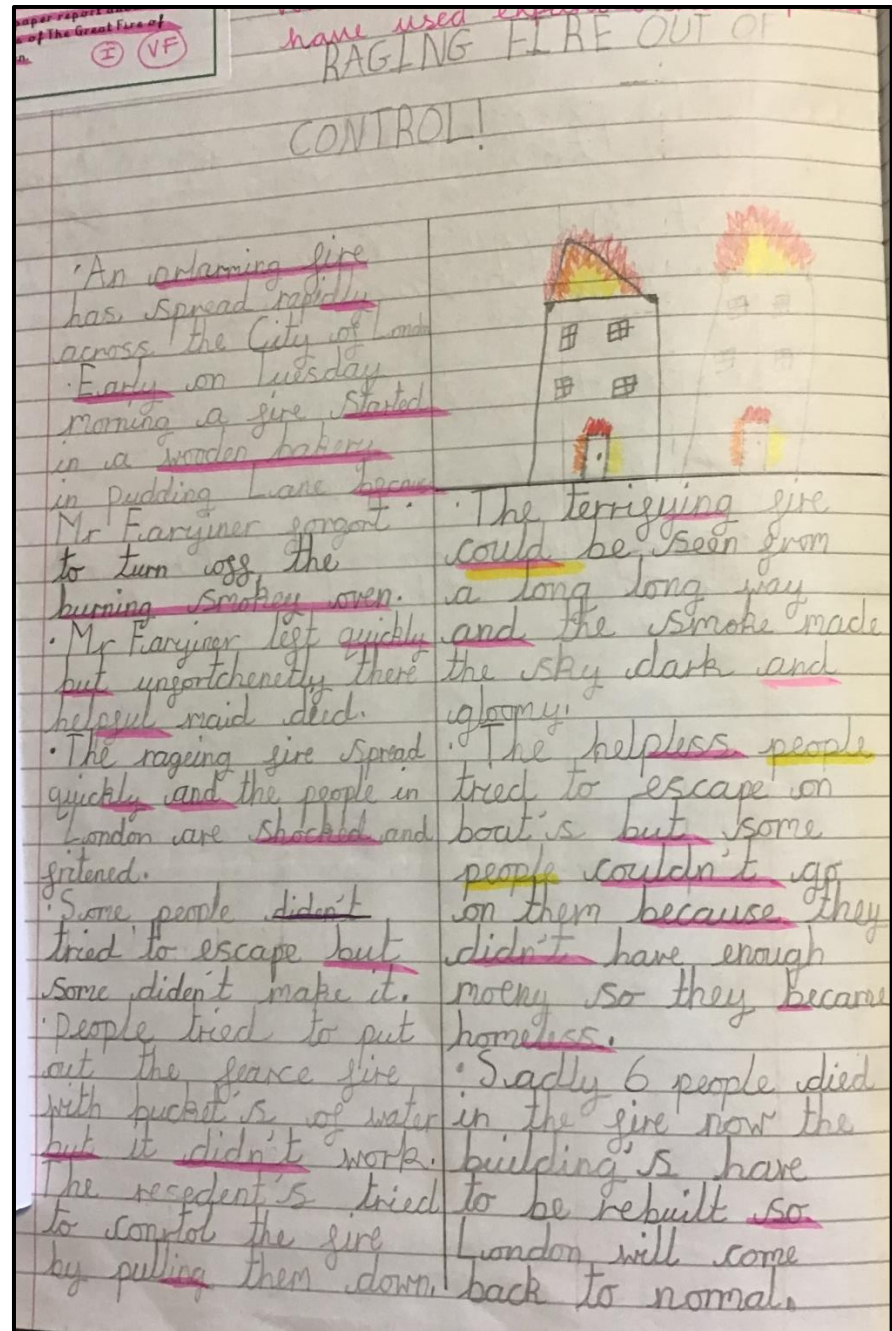 aper report and
s of The Great Fire of
n.
I VF
have used
RAGING FIRE OUT OF
CONTROL!
·An arlarming fire
has spread rapidly
across the City of Londo
·Early on Tuesday
morning a fire started
in a wooden bakery
in pudding Lane becaus
Mr Faryiner forgort
to turn off the
burning smokey oven.
·Mr Faryiner left quickly
but unfortchenetly there
helpful maid died.
·The rageing fire spread
quickly and the people in
London are shocked and
fritened.
·Some people diden't
tried to escape but
some diden't make it.
·People tried to put
out the fearce fire
with bucket's of water
but it didn't work.
The resedent's tried
to conrtol the fire
by pulling them down.
·The terrifying fire
could be seen from
a long long way
and the smoke made
the sky dark and
gloomy.
·The helpless people
tried to escape on
boat's but some
people couldn't go
on them because they
didn't have enough
moeny so they became
homeless.
·Sadly 6 people died
in the fire now the
building's have
to be rebuilt so
London will come
back to normal.